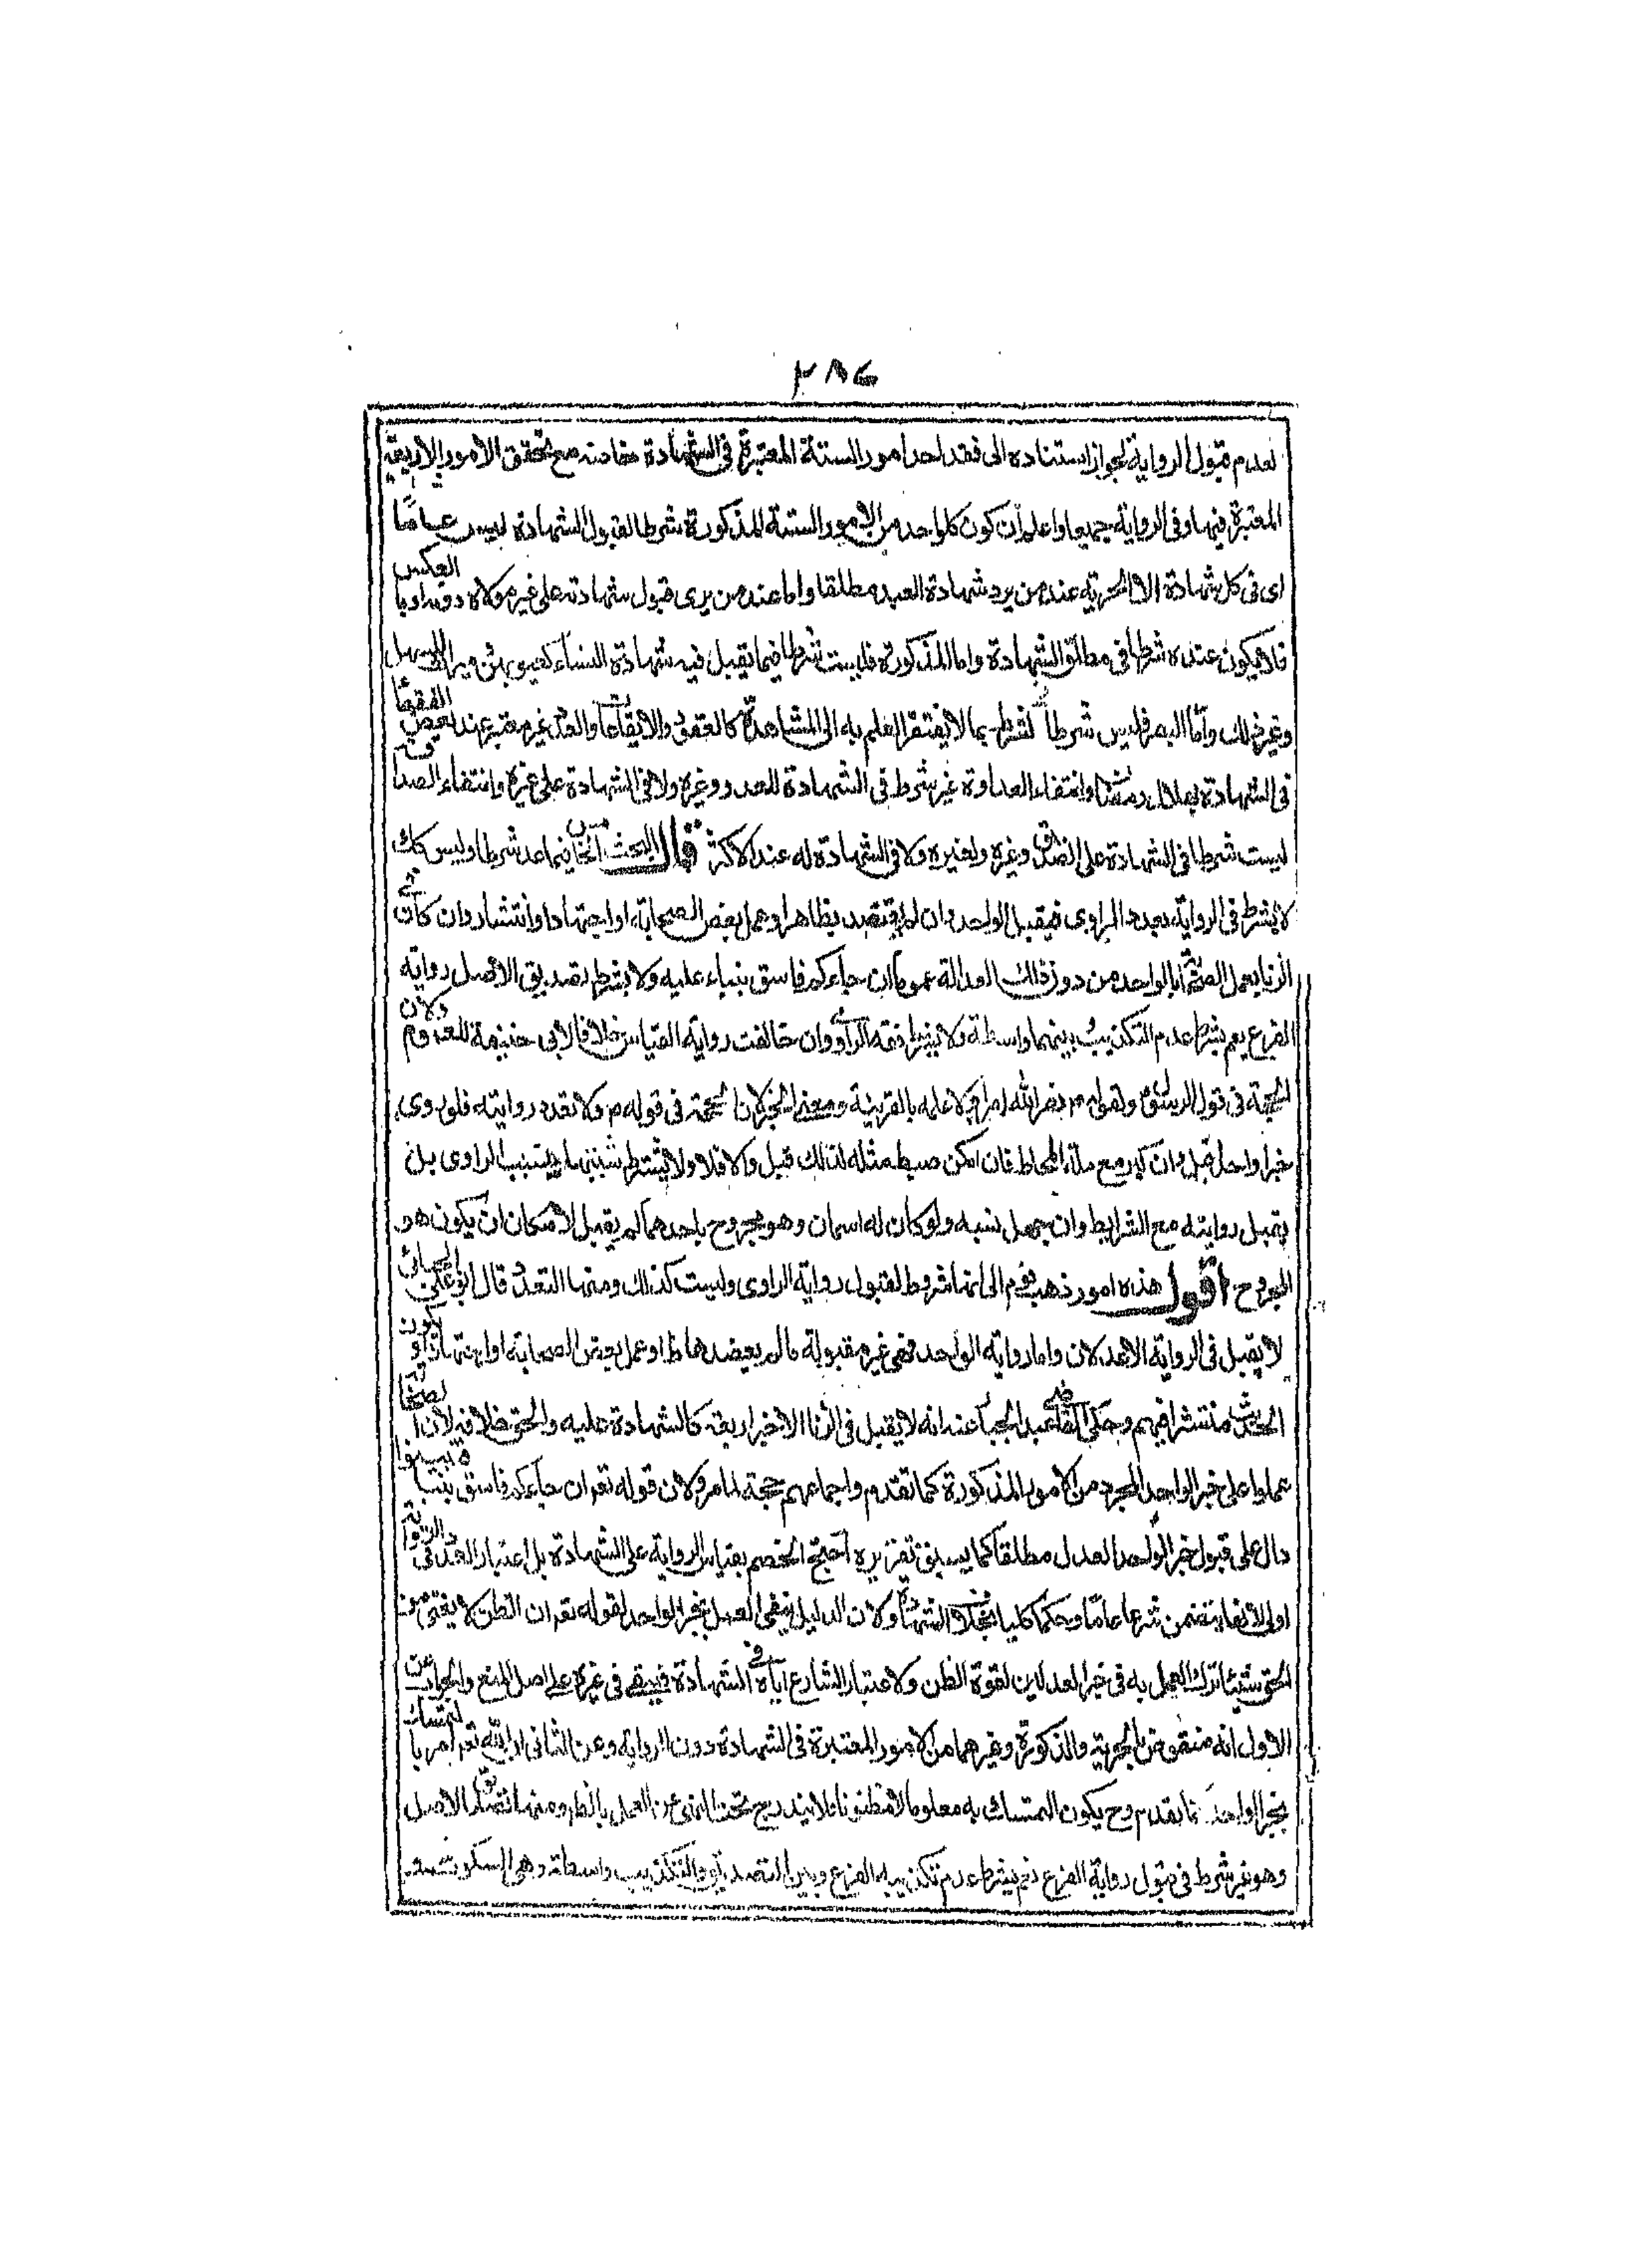 ٢٨٧
لعدم قبول الرواية لجواز استناده الى فقد احد امور الستة المعتبرة فى الشهادة خاصة مع تحقق الامور الاربعة
المعتبرة فيها وفى الرواية جميعا واعلم ان كون كل واحد من الامور الستة المذكورة شرطا لقبول الشهادة ليس عاما
اى فى كل شهادة الا الحرية عند من يرد شهادة العبد مطلقا واما عند من يرى قبول شهادته على غير مولاه دونه او بالعكس
فلا يكون عنده شرطا فى مطلق الشهادة واما الذكورة فليست شرطا فيما تقبل فيه شهادة النساء كعيوبهن
وغير ذلك واما البصر فليس شرطا بما لا يفتقر العلم به الى المشاهدة كالعقود والايقاعات والعدد غير معتبر عند بعض الفقهاء
فى الشهادة بهلال رمضان وانتفاء العداوة غير شرط فى الشهادة للعدو وغيره ولا فى الشهادة على غيره وانتفاء الصداقة
ليست شرطا فى الشهادة على الصديق وغيره ولغيره ولا فى الشهادة له عند الاكثر قال البحث الخامس فيما عد شرطا وليس كك
لا يشترط فى الرواية تعدد الراوى فيقبل الواحد وان لم يعتضد بظاهر او عمل بعض الصحابة او اجتهاد او انتشار وان كانت فى
الزنا لعمل الصحابة بالواحد من دون ذلك العدالة عموم ان جاءكم فاسق بنباء عليه ولا يشترط تصديق الاصل رواية
الفرع نعم يشترط عدم التكذيب وبينهما واسطة ولا يشترط فقه الراوى وان خالفت رواية القياس خلافا لابى حنيفة للعموم ولان
الحجة فى قول الرسول ولقوله م نضر الله امرا ولا علمه بالعربية ومعنى الخبر لان الحجة فى قوله م ولا تعدد روايته فلو روى
خبرا واحدا قبل وان كثر مع فان امكن ضبط مثله لذلك قبل والا فلا ولا يشترط نسب الراوى بل
تقبل روايته مع الشرايط وان جهل نسبه ولو كان له اسمان وهو مجروح باحدهما لم يقبل لامكان ان يكون هو
المجروح اقول هذه امور ذهب قوم الى انها شروط لقبول رواية الراوى وليست كذلك ومنها التعدد قال ابو على الجبائى
لا يقبل فى الرواية الا عدلان واما رواية الواحد فهى غير مقبولة ما لم يعضدها ظاهر او عمل بعض الصحابة او اجتهاد او يكون
الحديث منتشرا فيهم وحكى القاضى عبد الجبار عنه انه لا يقبل فى الزنا الا خبر اربعة كالشهادة عليه والحق خلافه لان الصحابة
عملوا على خبر الواحد المجرد من الامور المذكورة كما تقدم واجماعهم حجة لما مر ولان قوله تعه ان جاءكم فاسق بنبا فتبينوا
دال على قبول خبر الواحد العدل مطلقا كما سبق تقريره احتج الخصم بقياس الرواية على الشهادة بل اعتبار العدد فى الرواية
اولى لانها تتضمن شرعا عاما وحكما كليا بخلاف الشهادة ولان الدليل ينفى العمل بخبر الواحد لقوله تعه ان الظن لا يغنى من
الحق شيئا ترك العمل به فى خبر العدلين لقوة الظن ولاعتبار الشارع اياه فى الشهادة فيبقى فى غيره على اصل المنع والجواب عن
الاول انه منقوض بالحرية والذكورة وغيرهما من الامور المعتبرة فى الشهادة دون الرواية وعن الثانى ان الله تعه امر بالتمسك
بخبر الواحد بما تقدم وح يكون المتمسك به معلوما لا مظنونا فلا يندرج تحت النهى عن العمل بالظن ومنها تصديق الاصل
وهو غير شرط فى قبول رواية الفرع نعم يشترط عدم تكذيبه الفرع وبين التصديق والتكذيب واسطة وهى السكوت